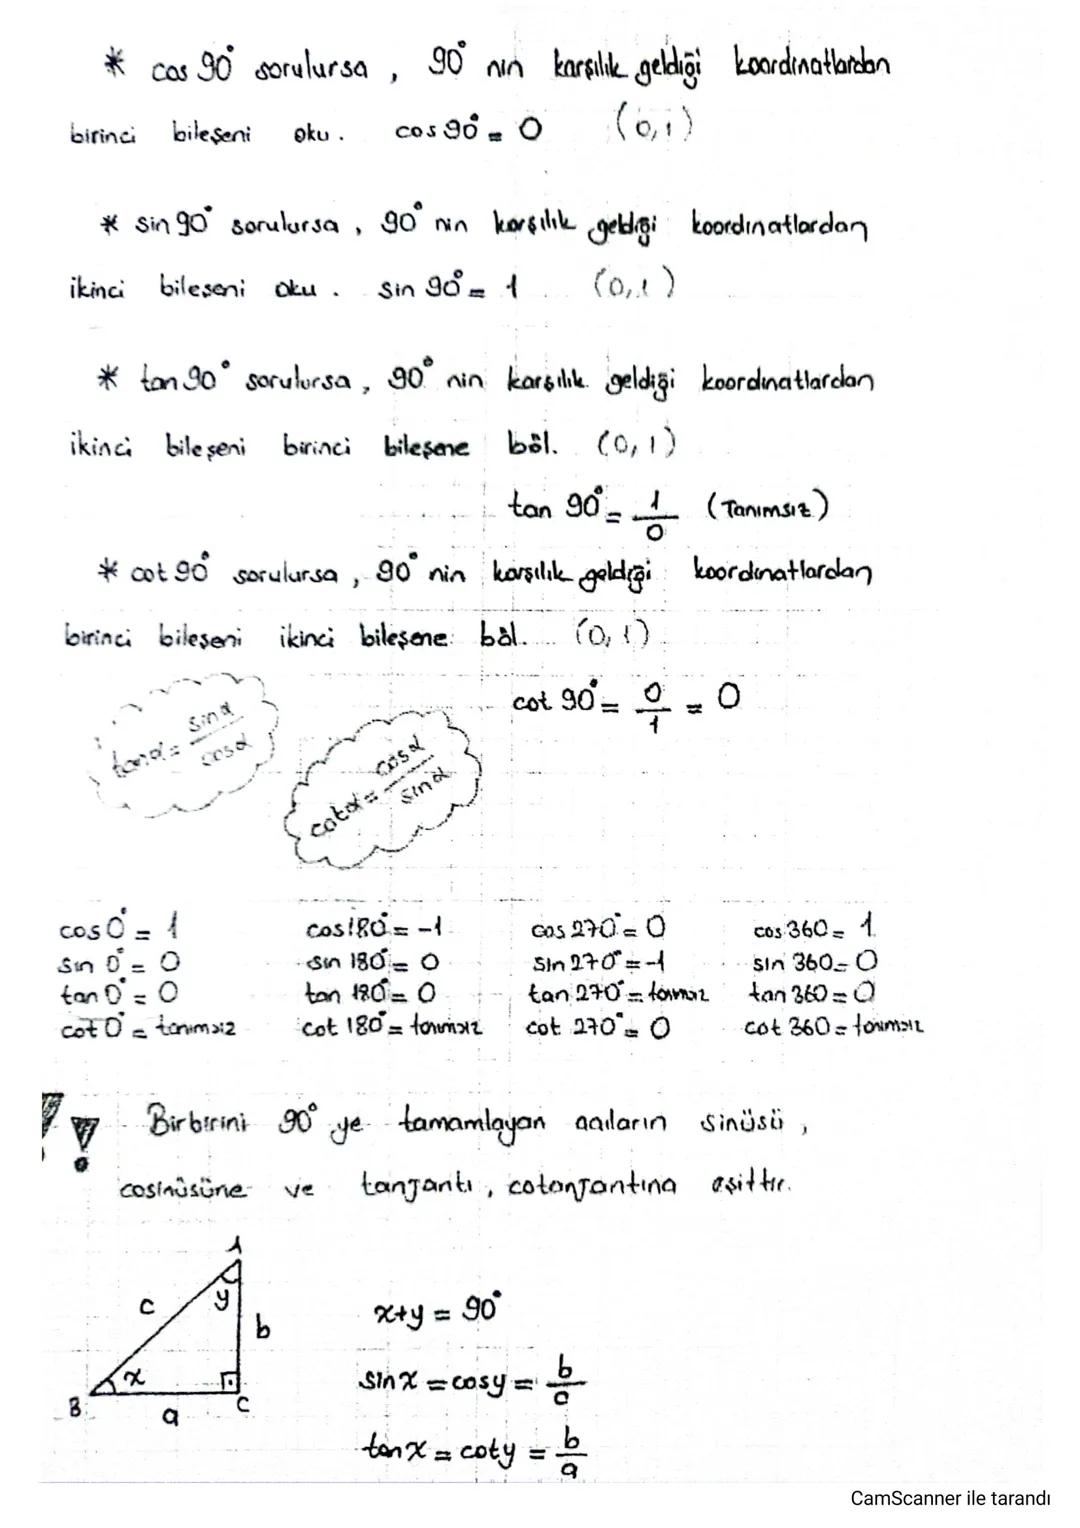 * cos 90° sorulursa, 90° nin karşılık geldiği koordinatlardan
birinci bileşeni oku. cos 90° = 0 (0,1)
* sin 90° sorulursa, 90° nin karşılık geldiği koordinatlardan
ikinci bileşeni oku. sin 90° = 1 (0,1)
* tan 90° sorulursa, 90° nin karşılık geldiği koordinatlardan
ikinci bileşeni birinci bileşene böl. (0,1)
tan 90° = 1/0 (Tanımsız)
* cot 90° sorulursa, 90° nin karşılık geldiği koordinatlardan
birinci bileşeni ikinci bileşene böl. (0,1)
cot 90° = 0/1 = 0
tanα = sinα/cosα
cotα = cosα/sinα
cos 0° = 1 cos 180° = -1 cos 270° = 0 cos 360 = 1
sin 0° = 0 sin 180° = 0 sin 270° = -1 sin 360 = 0
tan 0° = 0 tan 180° = 0 tan 270° = tanımsız tan 360 = 0
cot 0° = tanımsız cot 180° = tanımsız cot 270° = 0 cot 360 = tanımsız
!! Birbirini 90° ye tamamlayan açıların sinüsü,
cosinüsüne ve tanjantı, cotanjantına eşittir.
A
c y b
x
B a C
x+y = 90°
sinx = cosy = b/c
tanx = coty = b/a
CamScanner ile tarandı